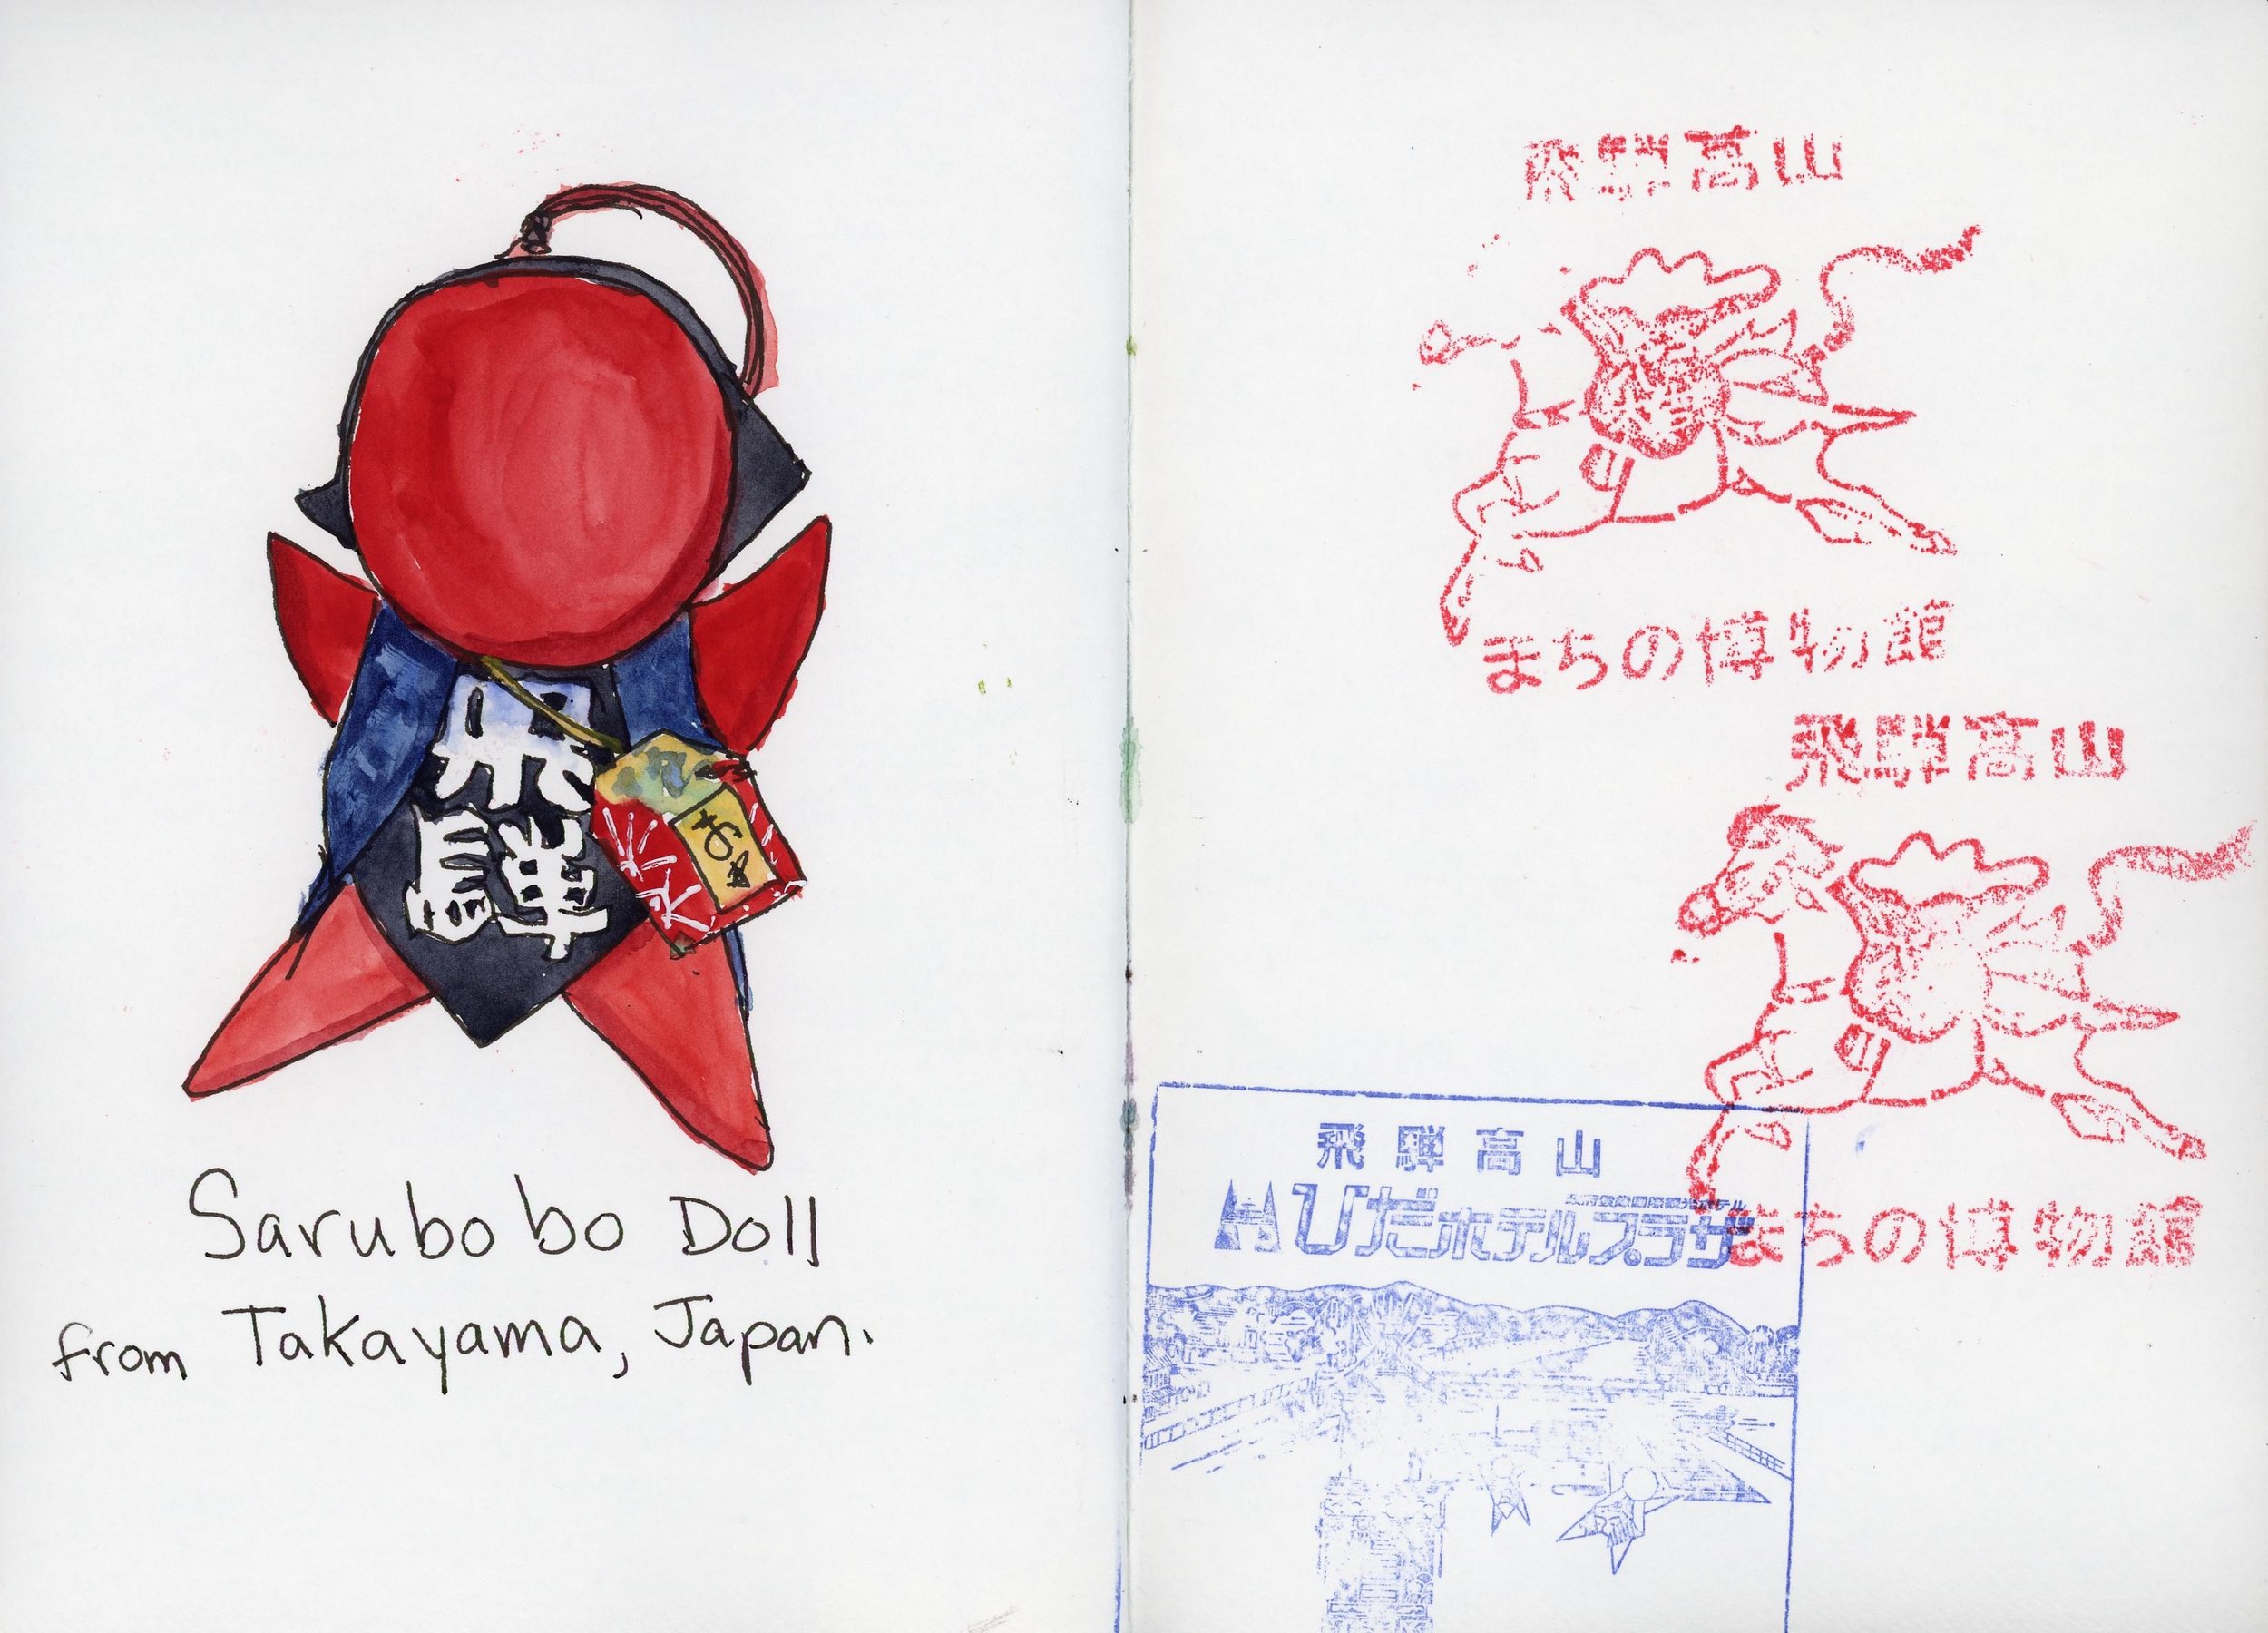 飛騨
お守
Sarubobo Doll
from Takayama, Japan.
飛騨高山
まちの博物館
飛騨高山
まちの博物館
飛騨高山
ひだホテルプラザ